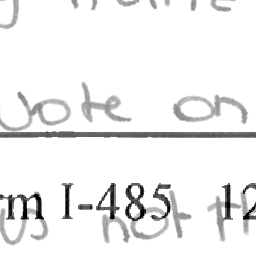 vote on
rm I-485 12
not th